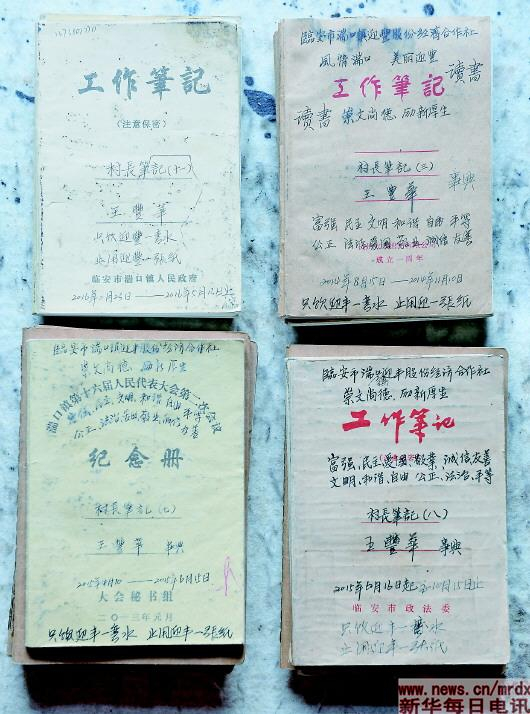 工作筆記
(注意保密)
村長筆記(十一)
王豐華
只饮迎丰一壶水
止用迎豐一张纸
临安市湍口镇人民政府
臨安市湍口镇迎豐股份经濟合作社
風情湍口 美丽迎豐
工作筆記
讀書
讀書
崇文尚德、励新厚生
村長筆記(三)
王豐華
事典
富强 民主 文明 和谐 自由 平等
公正 法治 爱国 敬业 诚信 友善
成立一周年
2014年8月15日——2014年11月10日
只饮迎丰一壶水 止用迎一张纸
臨安市湍口镇迎丰股份经济合作社
崇文尚德、励新厚生
湍口镇第十六届人民代表大会第二次会议
富强、民主、文明、和谐 自由 平等
公正、法治、爱国 敬业、诚信 友善
纪念册
村長筆記(七)
王豐華 事典
2015年4月10——2015年5月15日
大会秘书组
二〇一三年元月
只饮迎丰一壶水 止用迎丰一张纸
臨安市湍口迎丰股份经济合作社
崇文尚德、励新厚生
工作筆记
富强、民主、爱國、敬業、诚信友善
文明、和谐、自由 公正、法治、平等
村長筆記(八)
王豐華 事典
2015年5月16日起至10月15日止
临安市政法委
只饮迎丰一壶水
止用迎丰一张纸
www.news.cn/mrdx
新华每日电讯